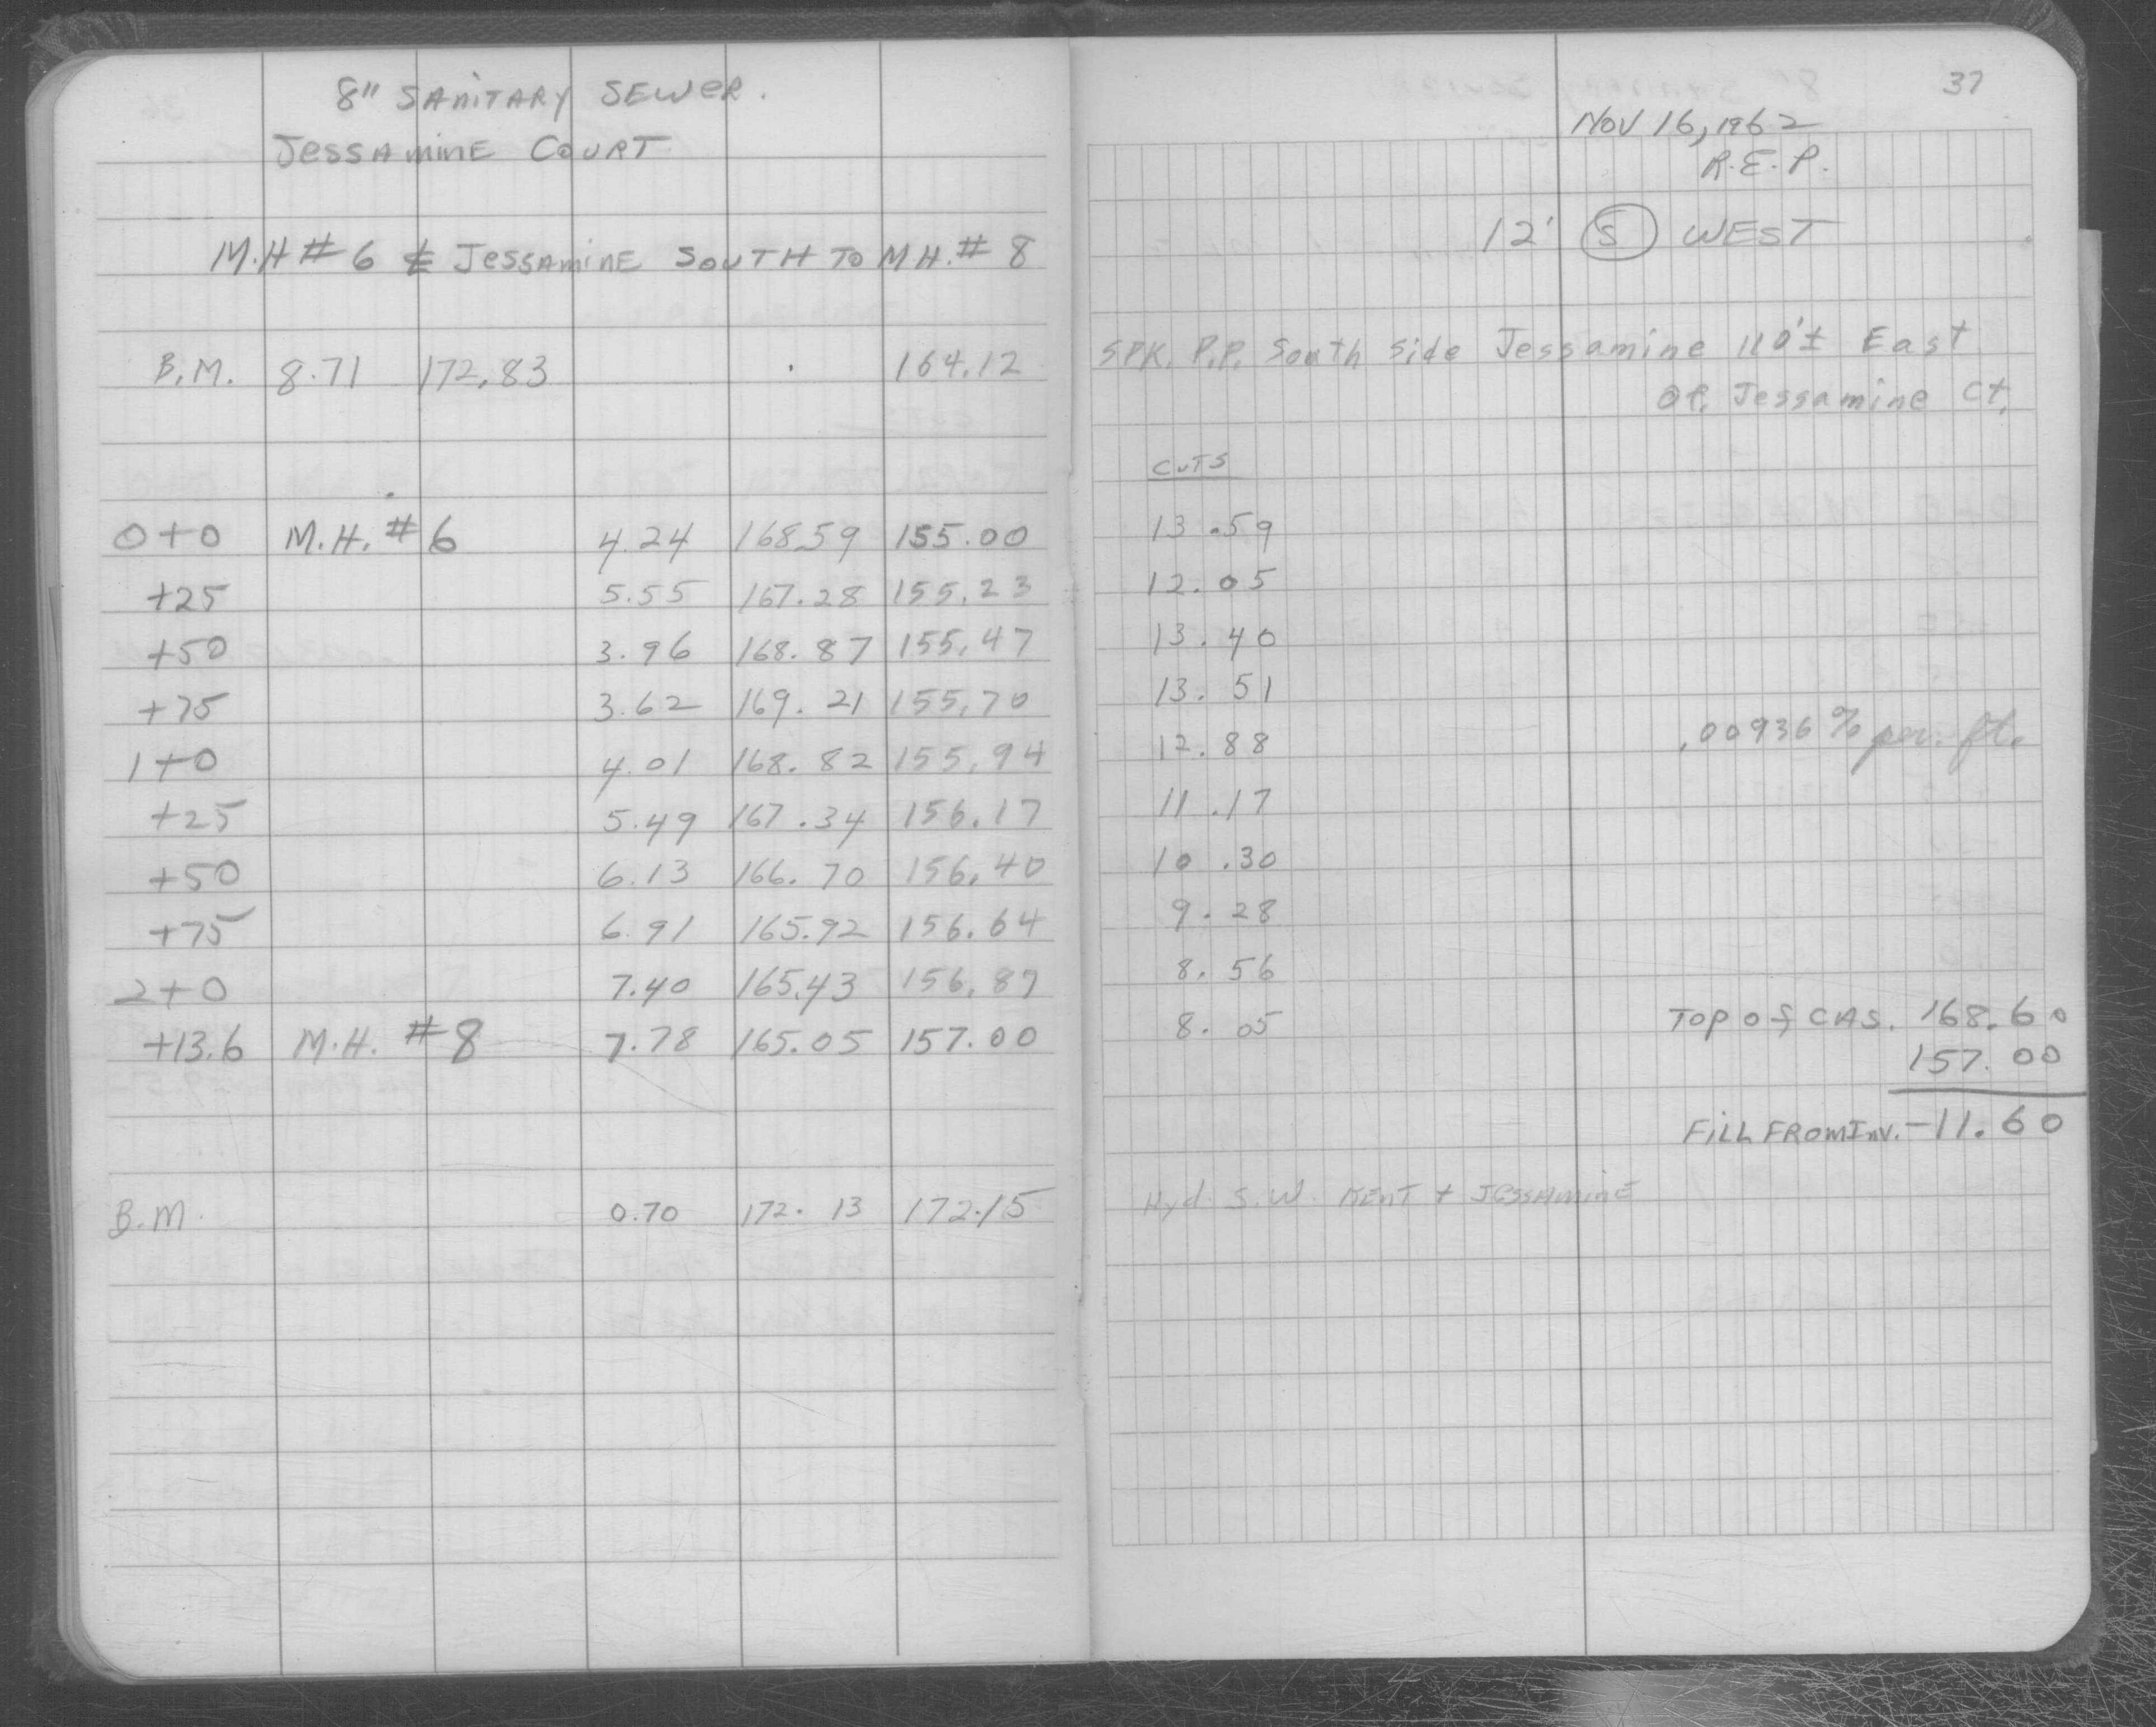 8" SANITARY SEWER.
JESSAMINE COURT
M.H # 6 ℄ JESSAMINE SOUTH TO M.H. # 8
B.M. 8.71 172.83 164.12
0+0 M.H. # 6 4.24 168.59 155.00
+25 5.55 167.28 155.23
+50 3.96 168.87 155.47
+75 3.62 169.21 155.70
1+0 4.01 168.82 155.94
+25 5.49 167.34 156.17
+50 6.13 166.70 156.40
+75 6.91 165.92 156.64
2+0 7.40 165.43 156.87
+13.6 M.H. # 8 7.78 165.05 157.00
B.M. 0.70 172.13 172.15
37
NOV 16, 1962
R.E.P.
12' S WEST
SPK. P.P. South Side Jessamine 110'± East
Of. Jessamine Ct.
CUTS
13.59
12.05
13.40
13.51
12.88 .00936 % per. ft.
11.17
10.30
9.28
8.56
8.05 TOP of CAS. 168.60
157.00
FILL FROM INV. -11.60
Hyd. S.W. KENT + JESSAMINE